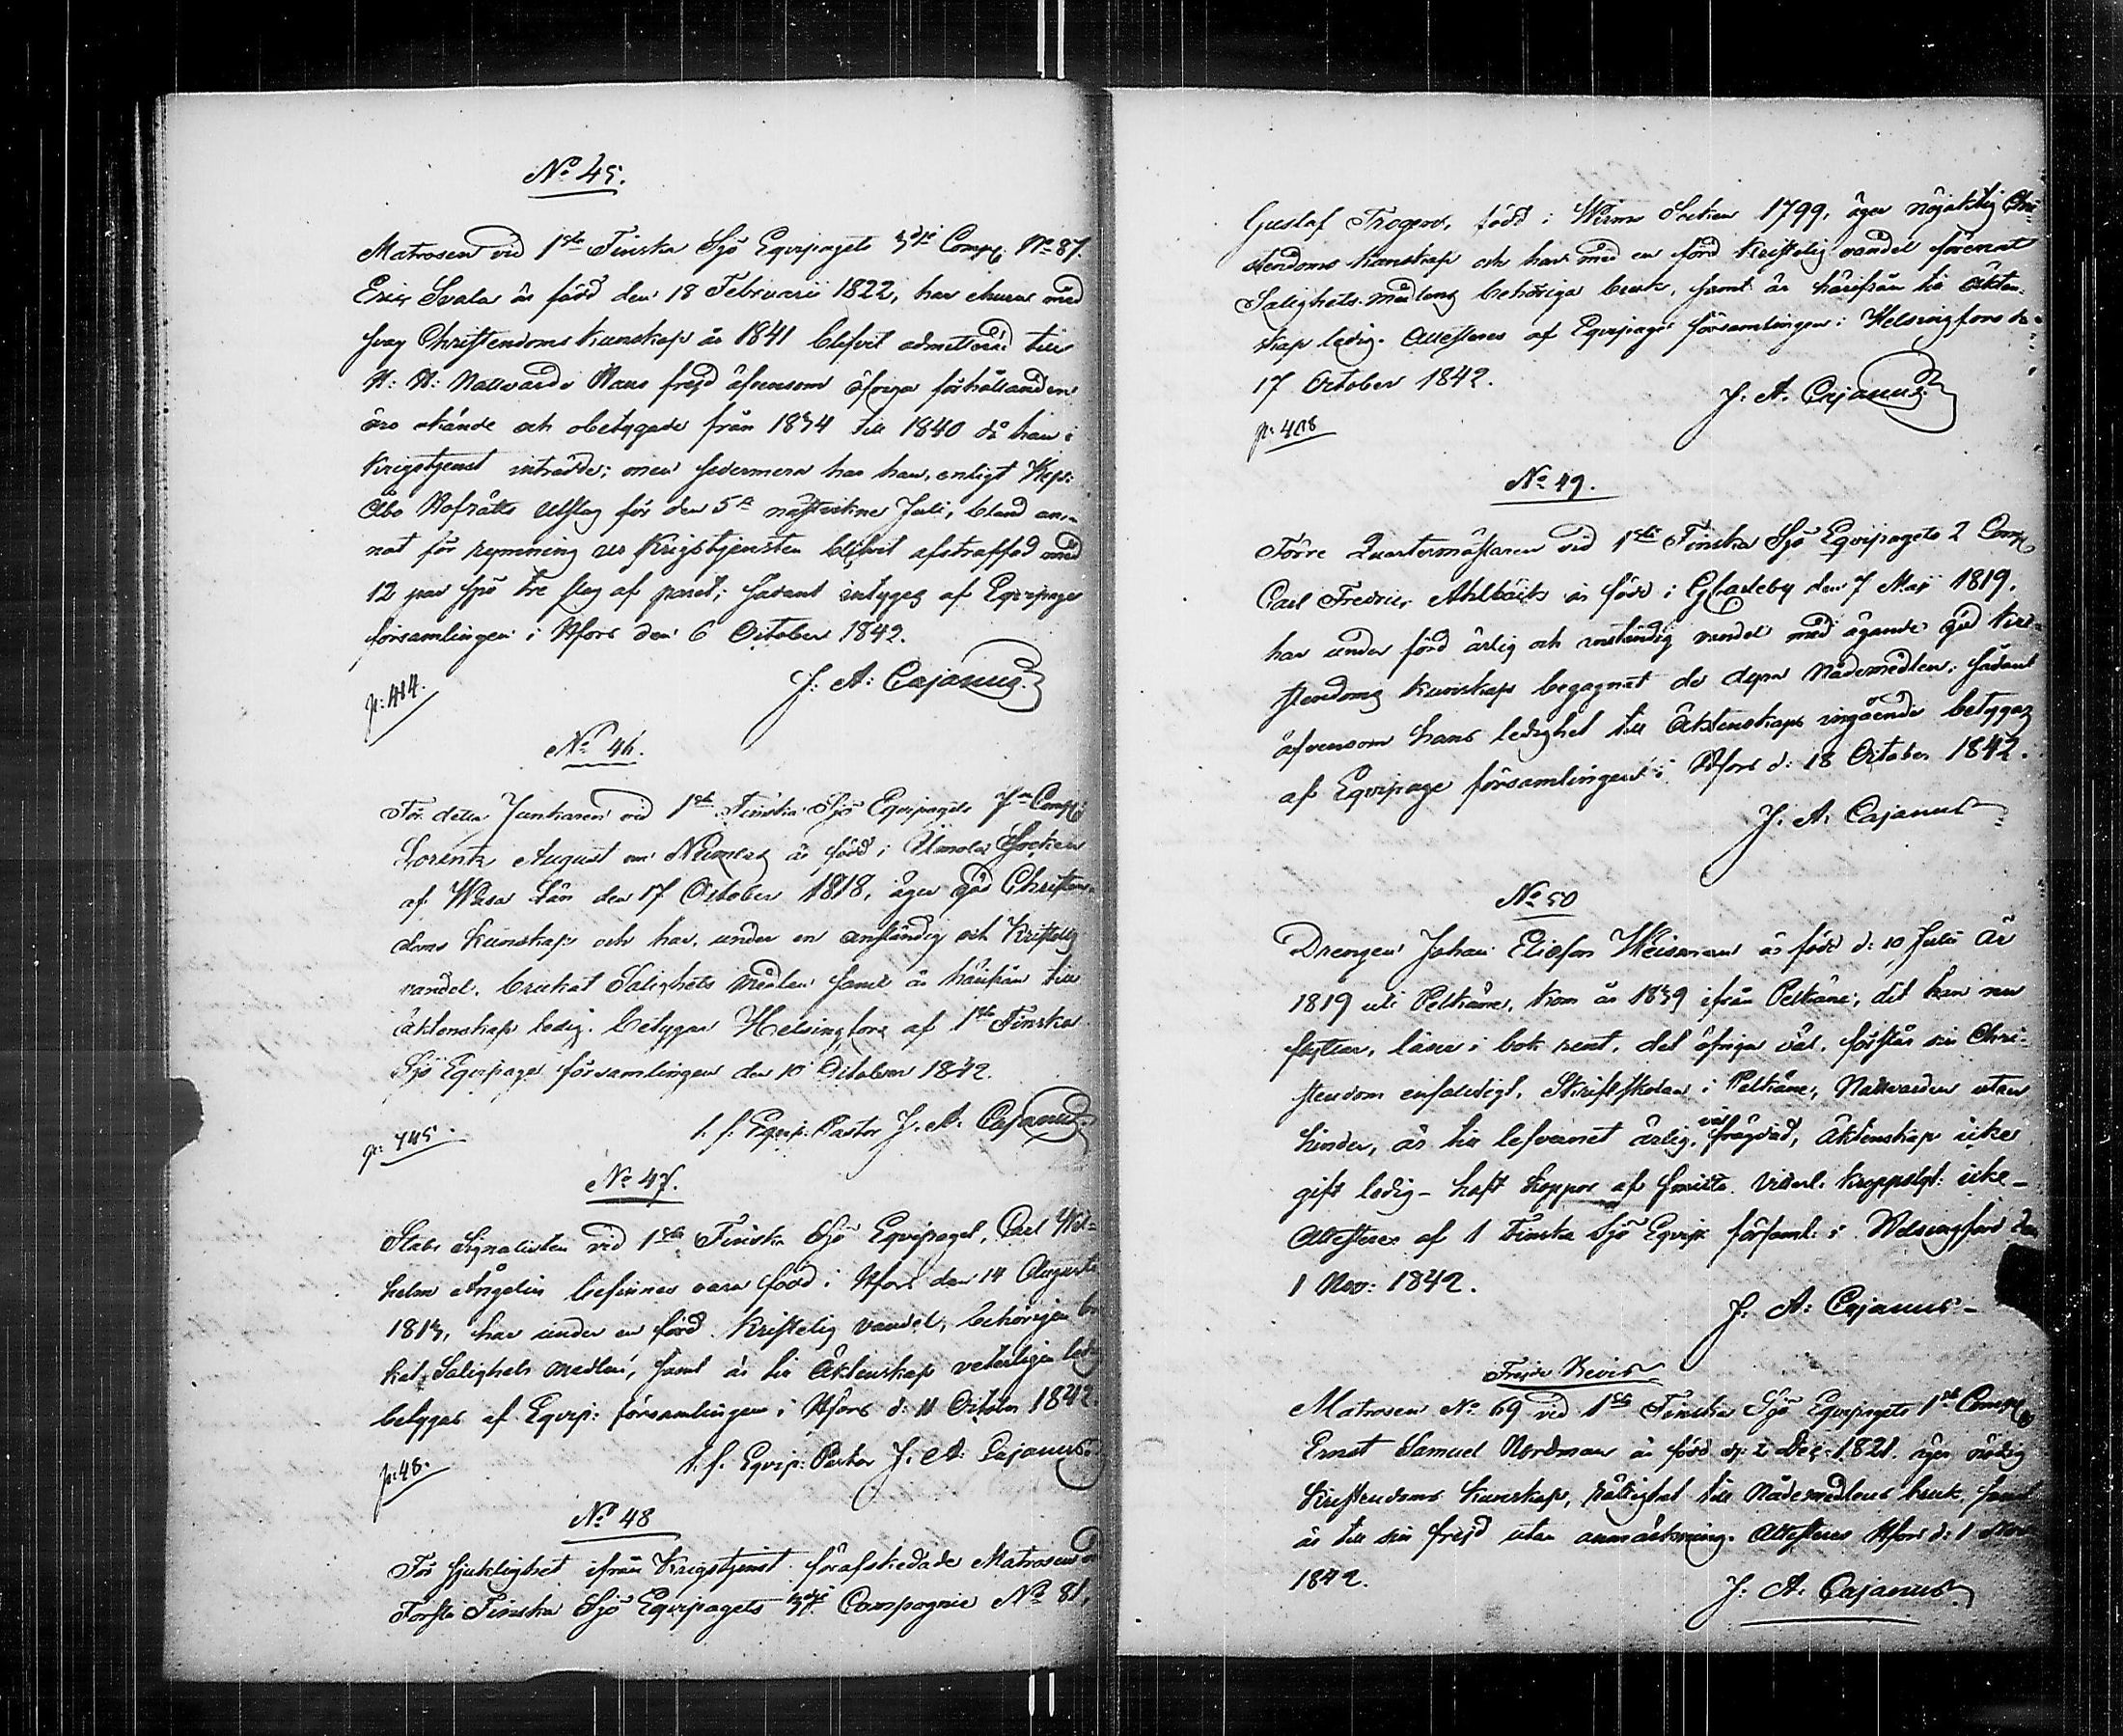 No 45.
Matrosen vid 1sta Finska Sjö Equipagets 3dje Comp. No 87.
Eric Svala är född den 18 Februarii 1822, har ehuru med
svag Christendoms kunskap år 1841 blefvit admitterad till
H: H: Nattvard. Hans frejd äfvensom öfriga förhållanden
äro okände och obetygade från 1834 till 1840 då han i
Krigstjenst inträdde; men sedermera har han, enligt Kejs:
Åbo Hofrätts Utslag för den 5te nästvikne Juli, bland an-
nat för rymning ur Krigstjensten blifvit afstraffad med
12 par spö tre slag af paret; sådant intygas af Equipage
församlingen i Hfors den 6 October 1842.
J: A: Cajanus.
p: 414.
No 46.
För detta Junkaren vid 1sta Finska Sjö Equipagets Comp:
Lorentz August är född i Ilmola Socken
af Wasa Län den 17 October 1818, äger god Christen-
doms kunskap och har, under en anständig och Kristelig
vandel, brukat Salighets medlen samt är härifrån till
äktenskap ledig. betygar Helsingfors af 1sta Finska
Sjö Equipage församlingen den 10 October 1842.
t. f. Equip. Pastor J. A. Cajanus.
p: 445.
No 47.
Stabs Signalisten vid 1sta Finska Sjö Equipaget, Carl Wil-
helm Ångelin befinnes vara född i Hfors den 14 Augusti
1813, har under en förd Kristelig vandel, behörigen bru
kat Salighets medlen, samt är till Äktenskap veterligen ledig
betygas af Equip: församlingen i Hfors d: 11 October 1842.
t. f. Equip: Pastor J. A: Cajanus.
p: 48.
No 48
För sjuklighet ifrån Krigstjenst förafskedade Matrosen vid
Första Finska Sjö Equipagets 3dje Compagnie No 81,
Gustaf Trogen, född i Wirmo Socken 1799, äger nöjaktig Chri-
stendoms kunskap och har med en förd Kristelig vandel förenat
Salighets medlens behöriga bruk, samt är härifrån till äkten-
skap ledig. Attesteras af Equipage församlingen i Helsingfors d.
17 October 1842.
J. A. Cajanus.
p: 408
No 49.
Förre Quartermästaren vid 1sta Finska Sjö Equipagets 2 Comp.
Carl Fredric Ahlbäck är född i Gl:Carleby den 7 Maji 1819,
har under förd ärlig och anständig vandel med ägande god Kri-
stendoms kunskap begagnat de dyra Nådemedlen; sådant
äfvensom hans ledighet till Äktenskaps ingående betygas
af Equipage församlingen i Hfors d: 18 October 1842.
J. A. Cajanus
No 50
Drengen Johan Eliæson Weisman är född d: 10 Julii År
1819 uti Pelkäne, kom år 1839 ifrån Pelkäne, dit han nu
flyttar, läser i bok rent, det öfriga väl, förstår sin Chri-
stendom enfaldigt, Skriftskolan i Pelkäne, Nattvarden utan
hinder, är till lefvernet ärlig, väl frägdad, Äktenskap icke
gift ledig - haft koppor af smitta. Viderl. kroppslyt: icke -
Attesteras af 1 Finska Sjö Equip församl: i Helsingfors den
1 Nov: 1842.
J. A: Cajanus -
Frejde Bevis
Matrosen No 69 vid 1sta Finska Sjö Equipagets 1sta Comp.
Ernst Samuel Nordman är född d: 2 Dec. 1821. äger nödig
Kristendoms kunskap, rättighet till Nådemedlens bruk, samt
är till sin frejd utan anmärkning. Attesteras Hfors d: 1 Nov
1842.
J. A. Cajanus